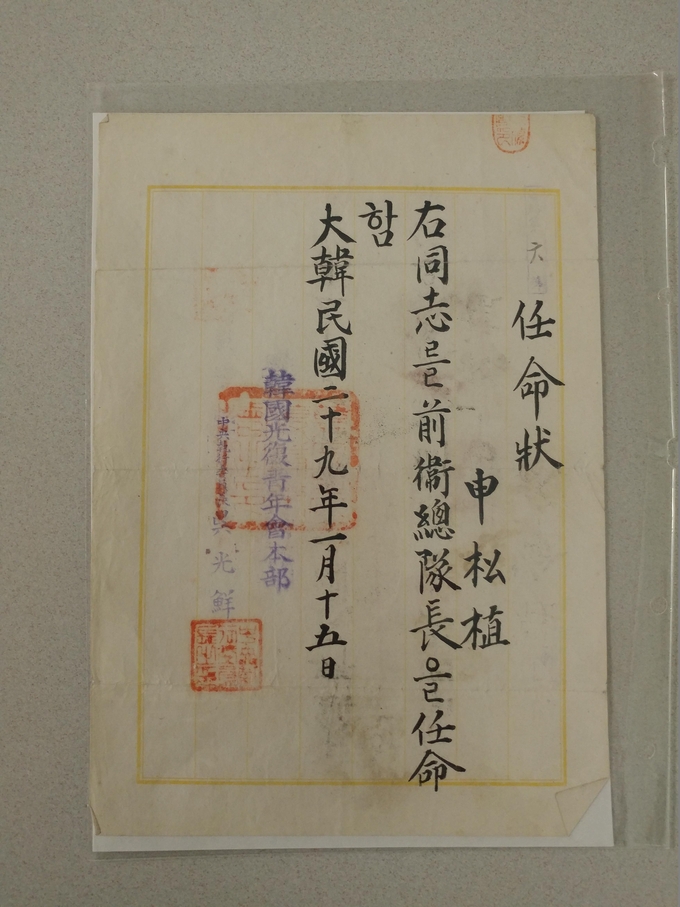 任命狀
申松植
右同志를 前衛總隊長을 任命
함
大韓民國二十九年一月十五日
韓國光復靑年會本部
吳光鮮